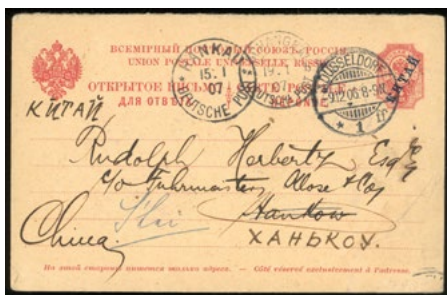 ВСЕМІРНЫЙ ПОЧТОВЫЙ СОЮЗЪ. РОССІЯ.
UNION POSTALE UNIVERSELLE. RUSSIE.
ОТКРЫТОЕ ПИСЬМО CARTE POSTALE
ДЛЯ ОТВѢТА
КИТАЙ
HANKAU
15.1
07
DEUTSCHE POST
07
DEUTSCHE POST
DÜSSELDORF
9.12.06.8-9N.
1
КИТАЙ
КИТАЙ
Rudolph Herbertz, Esq
c/o Fuhrmeister, Klose & Co
Hankow
China.
ХАНЬКОУ.
На этой сторонѣ пишется только адресъ. — Côté réservé exclusivement à l'adresse.